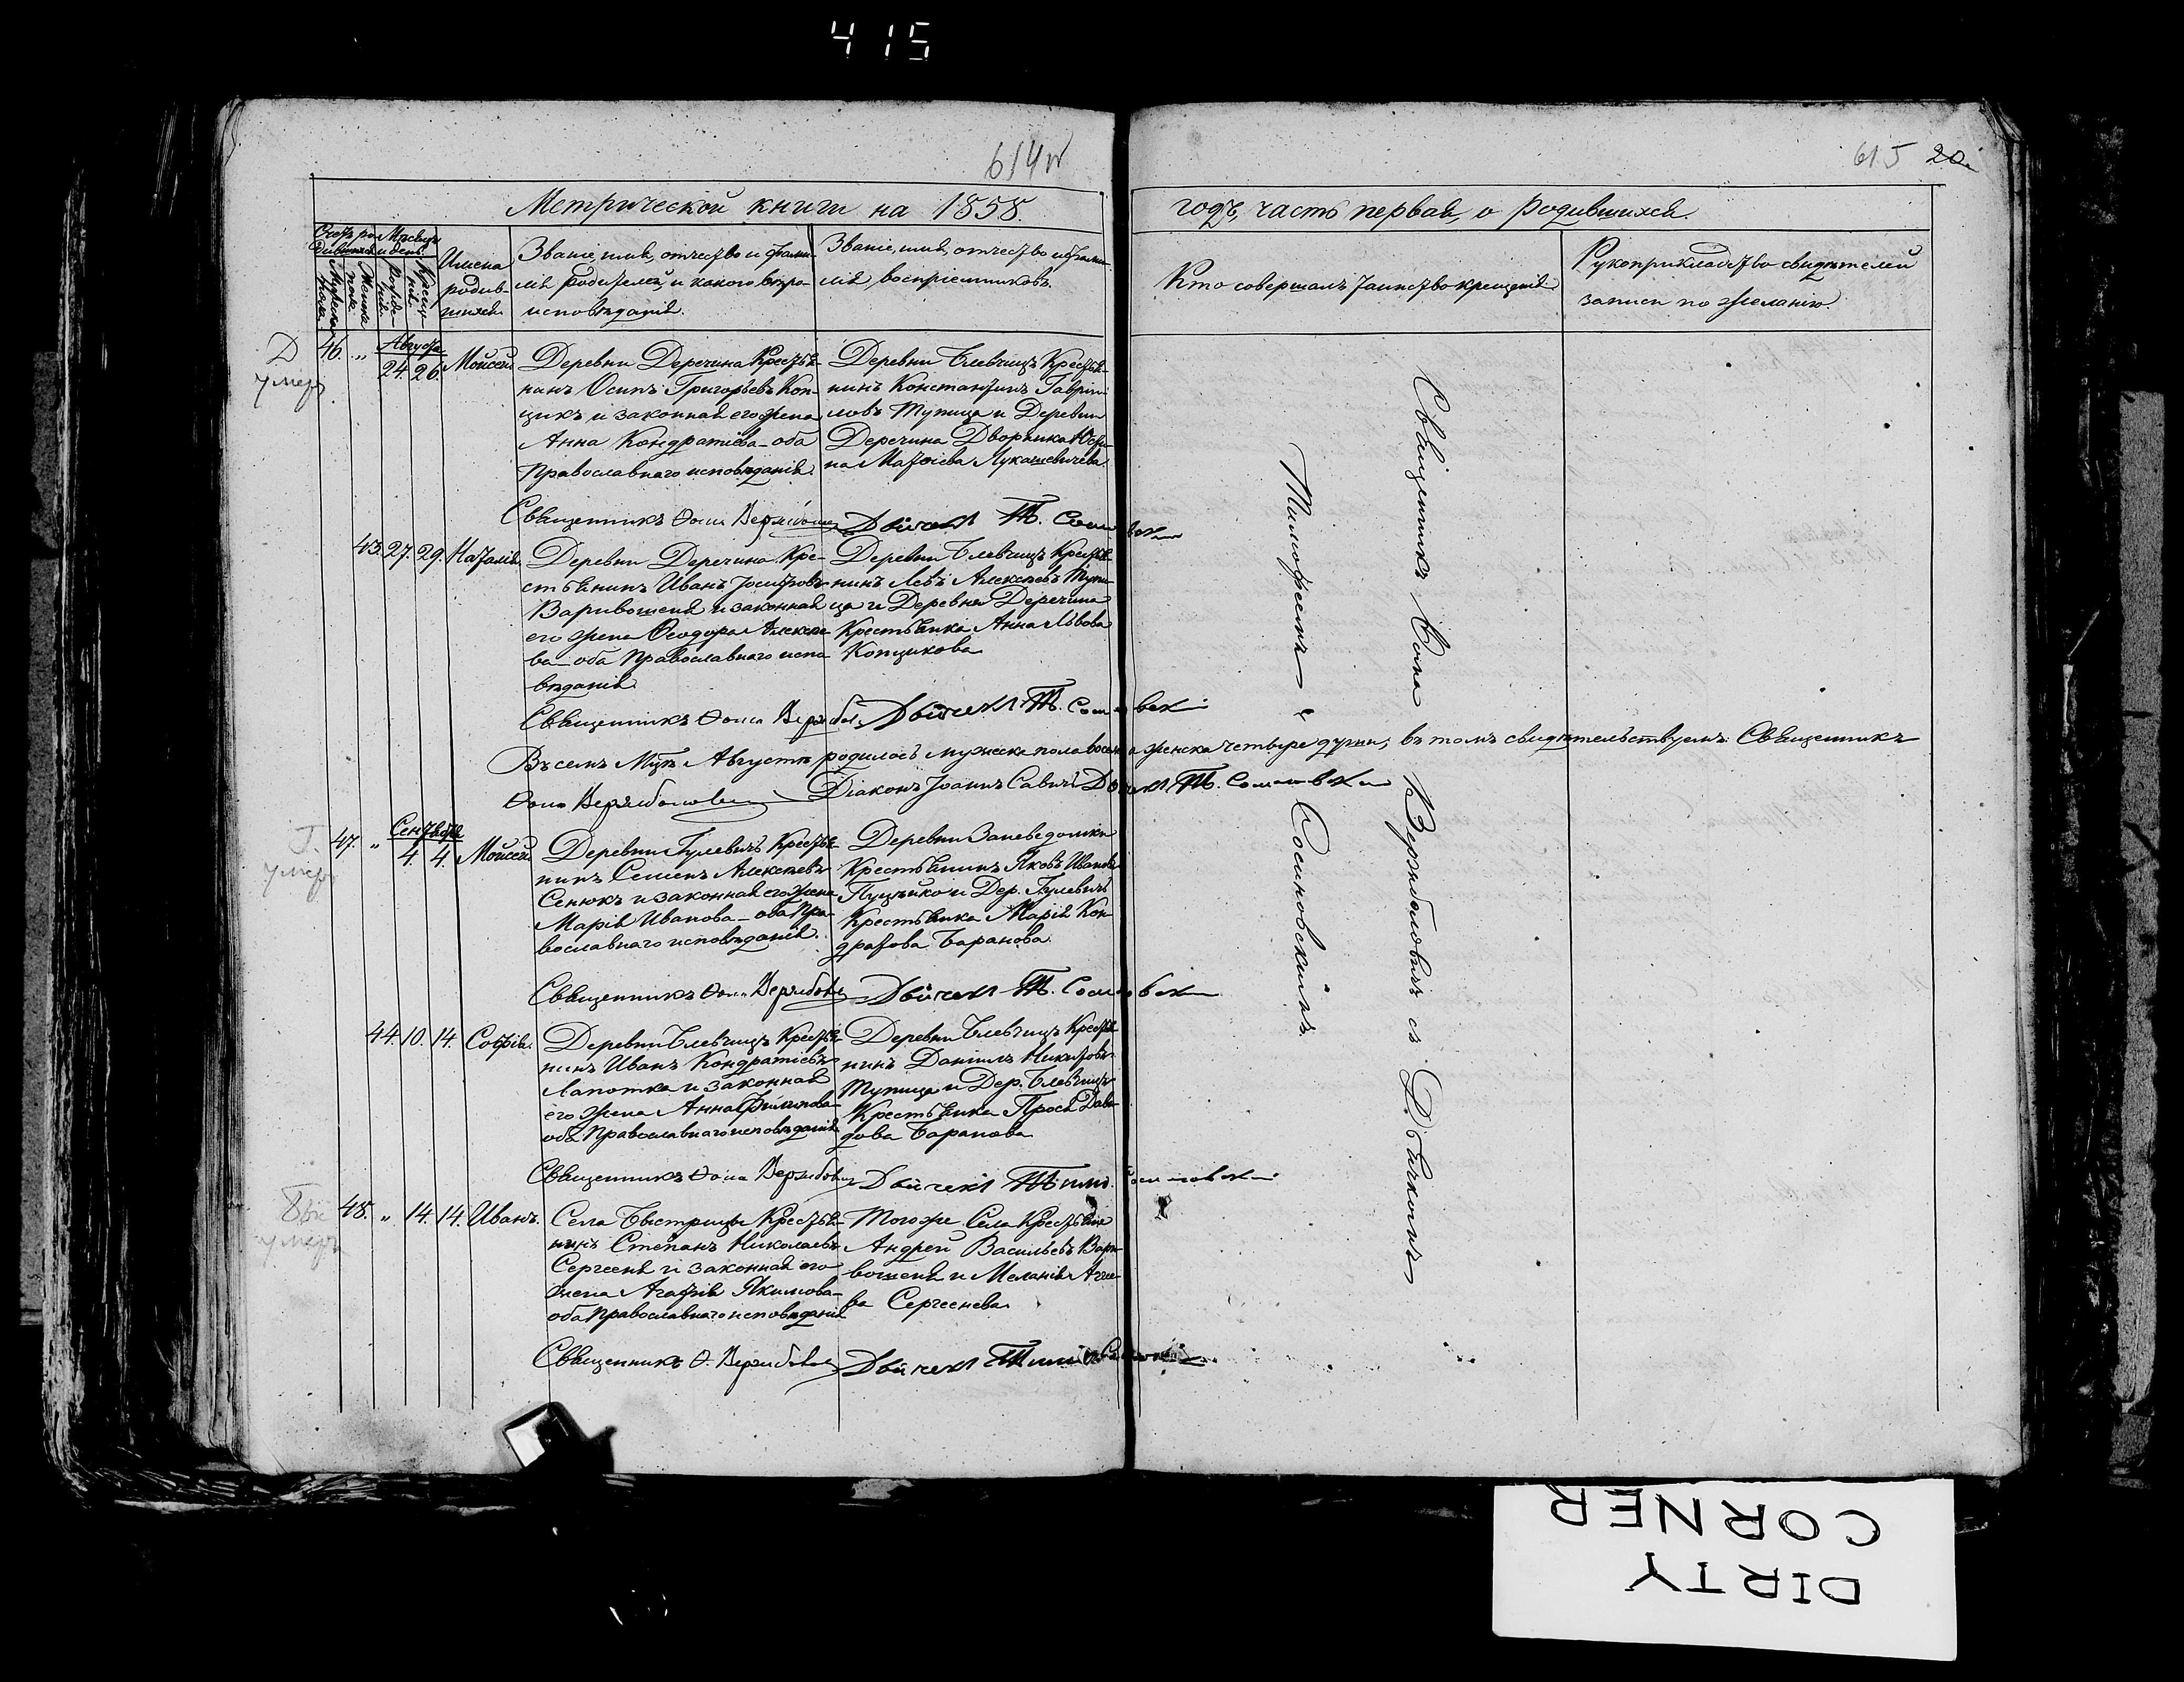 415
614
615 20.
Метрической книги на 1858.
годъ, часть первая, о родившихся.
Счетъ родившихся
Мѣсяцъ и день.
Мужеска пола.
Женска пола.
Рожденія.
Крещенія.
Имена родившихся.
Званіе, имя, отчество и фами-
лія родителей, и какого вѣро-
исповѣданія.
Званіе, имя, отчество и фами-
лія воспріемниковъ.
Кто совершалъ таинство крещенія.
Рукоприкладство свидѣтелей
записи по желанію.
Д
умеръ
Августа
46. „ 24. 26. Мойсей
Деревни Деречина Крестья-
нинъ Осипъ Григорьевъ Коп-
щикъ и законная его жена
Анна Кондратіева – оба
Православнаго исповѣданія.
Деревни Блевчицъ Крестья-
нинъ Константинъ Гаврии-
ловъ Тупица и Деревни
Деречина Дворянка
Матѳіева Лукашевичева
Священникъ Ѳома Дьячекъ Т.
43. 27. 29. Наталія.
Деревни Деречина Кре-
стьянинъ Иванъ Іосифовъ
Варивошеня и законная
его жена Ѳеодора Алексѣе
ва – оба Православнаго испо
вѣданія.
Деревни Блевчицъ Крестья-
нинъ Левъ Алексѣевъ Тупи-
ца и Деревни Деречина
Крестьянка Анна Львова
Копщикова
Священникъ Ѳома Дьячекъ Т.
Въ семъ Мцѣ Августѣ родилось мужеска пола восемь, а женска четыре души, въ томъ свидѣтельствуемъ: Священникъ
Ѳома Вержболовичъ Діаконъ Іоаннъ Савичъ Дьячекъ Т. Сосиновскій
умеръ
Сентября
47. „ 4. 4. Мойсей
Деревни Гулевичъ Крестья-
нинъ Семенъ Алексѣевъ
Сенюкъ и законная его жена
Марія Иванова – оба Пра-
вославнаго исповѣданія.
Деревни
Крестьянинъ Яковъ Ивановъ
и Дер. Гулевичъ
Крестьянка Марія Кон-
дратова Баранова.
Священникъ Ѳома Дьячекъ Т.
44. 10. 14. Софія.
Деревни Блевчицъ Крестья-
нинъ Иванъ Кондратіевъ
Лапотка и законная
его жена Анна Филипова –
оба Православнаго исповѣданія
Деревни Блевчицъ Крестья-
нинъ Даніилъ Никитовъ
Тупица и Дер. Блевчицъ
Крестьянка Прося Дави-
дова Баранова
Священникъ Ѳома Дьячекъ Тимо. Сосиновскій
умеръ
48. „ 14. 14. Иванъ.
Села Быстрицы Крестья-
нинъ Степанъ Николаевъ
Сергееня и законная его
жена Агафія Якимова –
оба Православнаго исповѣданія
Тогоже Села Крестьяне
Андрей Васильевъ Вари-
вошеня и Меланія
ва Сергеенева.
Священникъ Ѳ. Дьячекъ
Священникъ Ѳома Вержболовичъ съ Дьячкомъ
Тимофеемъ Сосиновскимъ.
DIRTY
CORNER